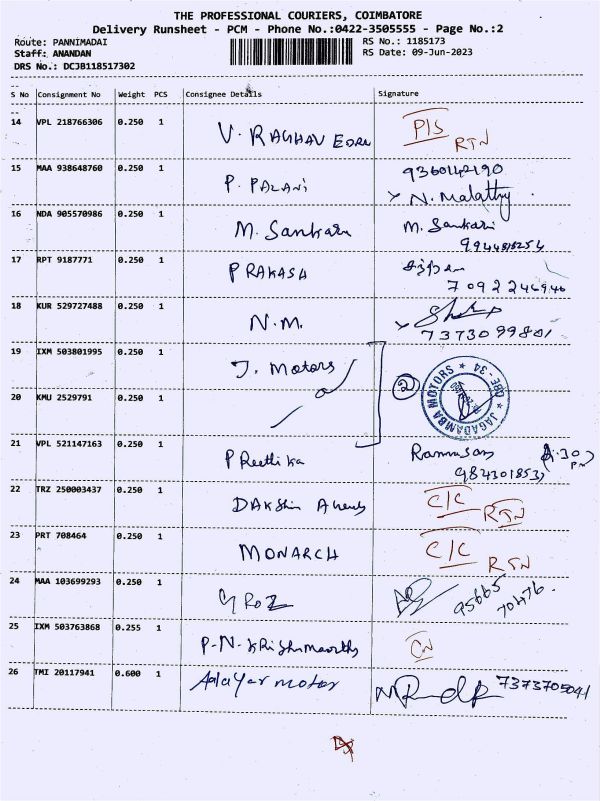 THE PROFESSIONAL COURIERS, COIMBATORE
Delivery Runsheet - PCM - Phone No.:0422-3505555 - Page No.:2
Route: PANNIMADAI RS No.: 1185173
Staff: ANANDAN RS Date: 09-Jun-2023
DRS No.: DCJB118517302
S No Consignment No Weight PCS Consignee Details Signature
14 VPL 218766306 0.250 1 V. RAGHAV P/S RTN
15 MAA 938648760 0.250 1 P. PALANI 9360142190
N. Malathy
16 NDA 905570986 0.250 1 M. Sankari M. Sankari
17 RPT 9187771 0.250 1 PRAKASH
7092246946
18 KUR 529727488 0.250 1 N.M.
7373099801
19 IXM 503801995 0.250 1 J. Motors
2
JAGADAMBA MOTORS * CBE - 34 *
20 KMU 2529791 0.250 1
21 VPL 521147163 0.250 1 PReethika
22 TRZ 250003437 0.250 1 DAKShin C/C RTN
23 PRT 708464 0.250 1 MONARCH C/C RTN
24 MAA 103699293 0.250 1 95665
70476
25 IXM 503763868 0.255 1 P.N. CN
26 TMI 20117941 0.600 1 Adayar motor 7373705041